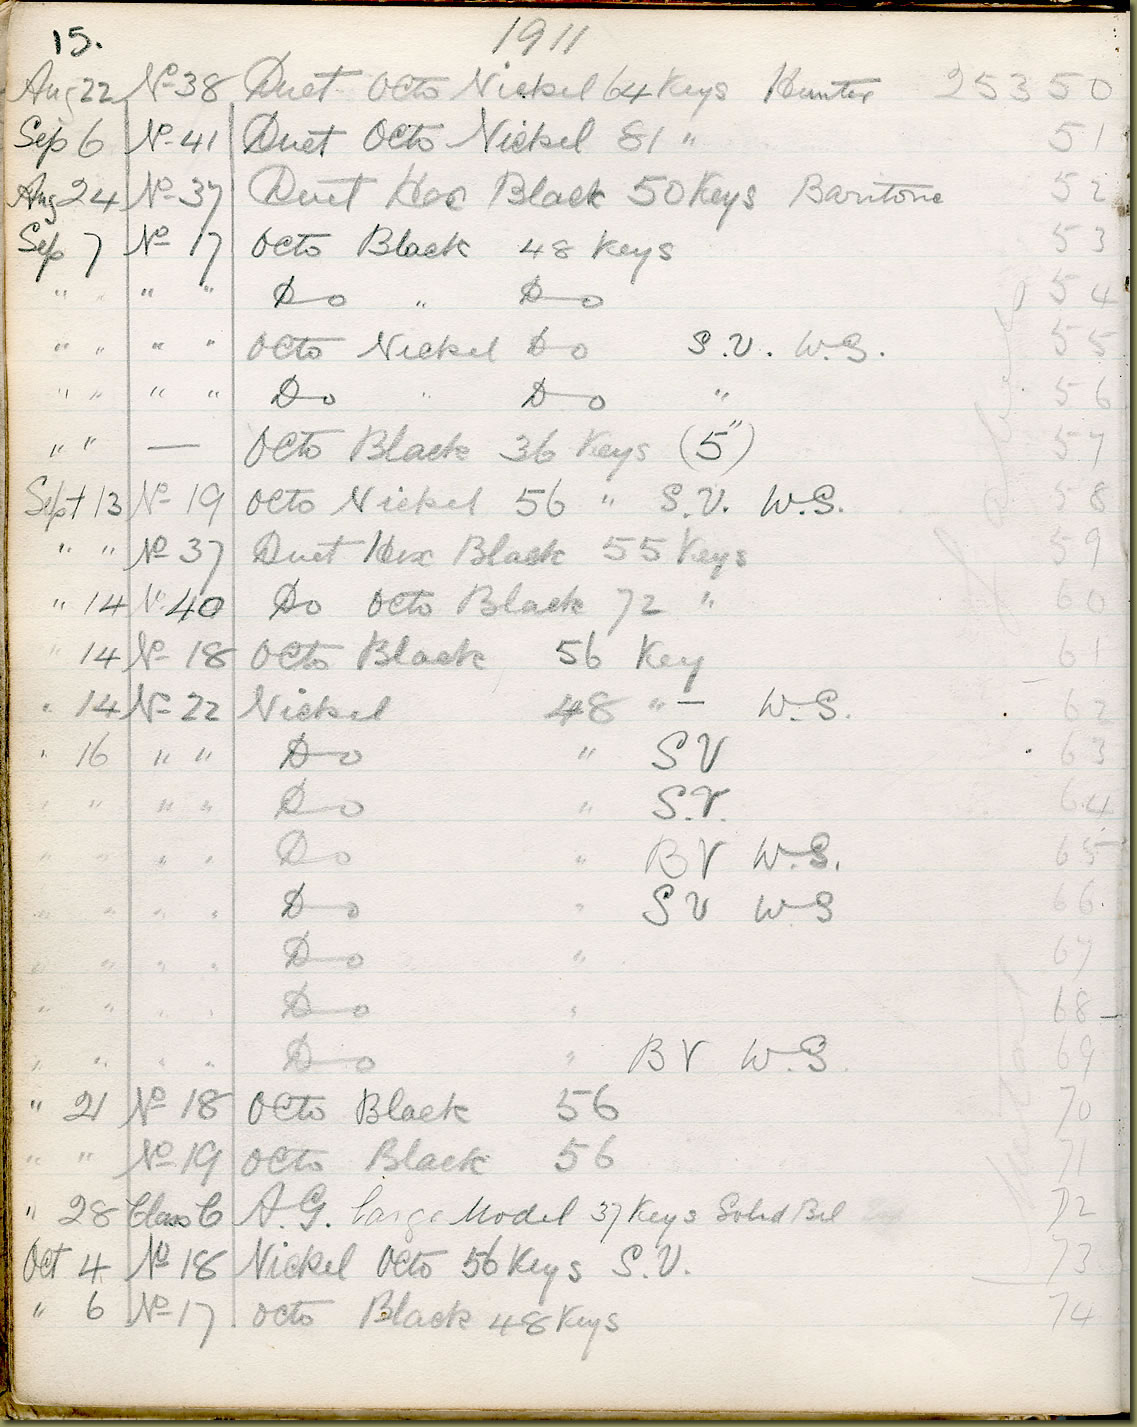 15.
1911
Aug 22 No 38 Duet Octo Nickel 64 Keys Hunter 25350
Sep 6 No 41 Duet Octo Nickel 81 " 51
Aug 24 No 37 Duet Hex Black 50 Keys Baritone 52
Sep 7 No 17 Octo Black 48 Keys 53
" " " " Do " Do 54
" " " " Octo Nickel Do S.V. W.S. 55
" " " " Do " Do " 56
" " — Octo Black 36 Keys (5") 57
Sept 13 No 19 Octo Nickel 56 " S.V. W.S. 58
" " No 37 Duet Hex Black 55 Keys 59
" 14 No 40 Do Octo Black 72 " 60
" 14 No 18 Octo Black 56 Key 61
" 14 No 22 Nickel 48 " — W.S. 62
" 16 " " Do " SV 63
" " " " Do " S.V. 64
" " " " Do " BV W.S. 65
" " " " Do " SV WS 66
" " " " Do " 67
" " " " Do " 68
" " " " Do " BV W.S. 69
" 21 No 18 Octo Black 56 70
" " No 19 Octo Black 56 71
" 28 Class C A.G. Large Model 37 Keys Solid Bel 72
Oct 4 No 18 Nickel Octo 56 Keys S.V. 73
" 6 No 17 Octo Black 48 Keys 74